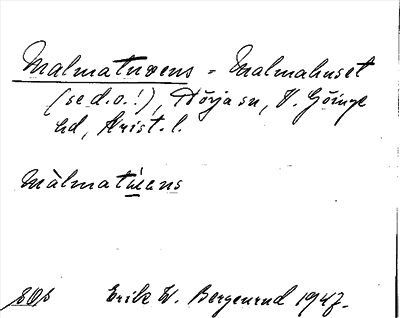 Malmatuvens = Malmahuset
(se d.o.!), Dörja sn, V. Göinge
hd, Krist. l.
Màlmat
Erik W. Bergenrud 1947.